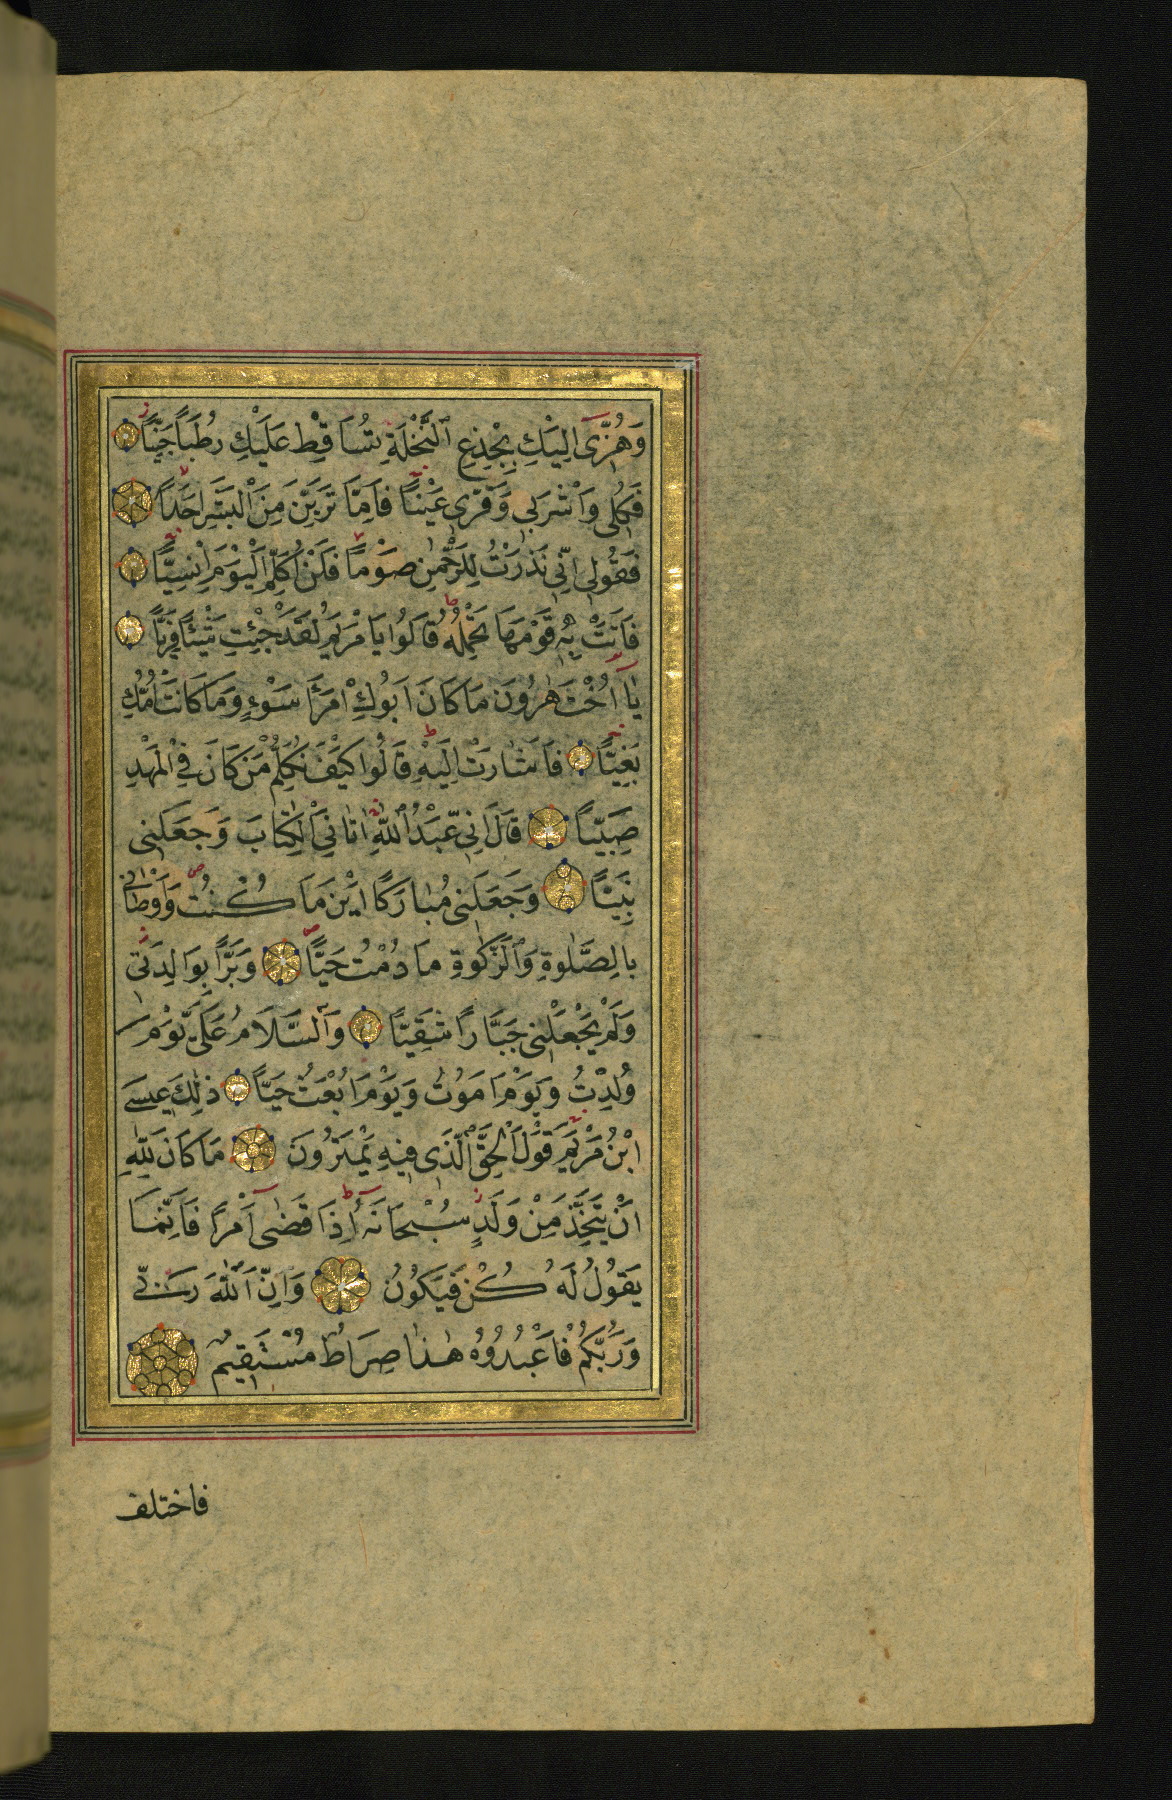 وَهُزِّىٓ اِلَيْكِ بِجِذْعِ ٱلنَّخْلَةِ تُسَاقِطْ عَلَيْكِ رُطَبًا جَنِيًّا
فَكُلِى وَاشْرَبِى وَقَرِّى عَيْنًا فَاِمَّا تَرَيِنَّ مِنَ الْبَشَرِ اَحَدًا
فَقُولِى اِنِّى نَذَرْتُ لِلرَّحْمٰنِ صَوْمًا فَلَنْ اُكَلِّمَ الْيَوْمَ اِنْسِيًّا
فَاَتَتْ بِهٖ قَوْمَهَا تَحْمِلُهُ قَالُوا يَا مَرْيَمُ لَقَدْ جِئْتِ شَيْئًا فَرِيًّا
يَآ اُخْتَ هٰرُونَ مَا كَانَ اَبُوكِ امْرَاَ سَوْءٍ وَمَا كَانَتْ اُمُّكِ
بَغِيًّا فَاَشَارَتْ اِلَيْهِ قَالُوا كَيْفَ نُكَلِّمُ مَنْ كَانَ فِى الْمَهْدِ
صَبِيًّا قَالَ اِنِّى عَبْدُ ٱللّٰهِ اٰتَانِىَ الْكِتَابَ وَجَعَلَنِى
نَبِيًّا وَجَعَلَنِى مُبَارَكًا اَيْنَ مَا كُنْتُ وَاَوْصَانِى
بِالصَّلٰوةِ وَٱلزَّكٰوةِ مَا دُمْتُ حَيًّا وَبَرًّا بِوَالِدَتِى
وَلَمْ يَجْعَلْنِى جَبَّارًا شَقِيًّا وَٱلسَّلَامُ عَلَىَّ يَوْمَ
وُلِدْتُ وَيَوْمَ اَمُوتُ وَيَوْمَ اُبْعَثُ حَيًّا ذٰلِكَ عِيسَى
ابْنُ مَرْيَمَ قَوْلَ الْحَقِّ ٱلَّذِى فِيهِ يَمْتَرُونَ مَا كَانَ لِلّٰهِ
اَنْ يَتَّخِذَ مِنْ وَلَدٍ سُبْحَانَهُ اِذَا قَضٰٓى اَمْرًا فَاِنَّمَا
يَقُولُ لَهُ كُنْ فَيَكُونُ وَاِنَّ ٱللّٰهَ رَبِّى
وَرَبُّكُمْ فَاعْبُدُوهُ هٰذَا صِرَاطٌ مُسْتَقِيمٌ
فاختلف